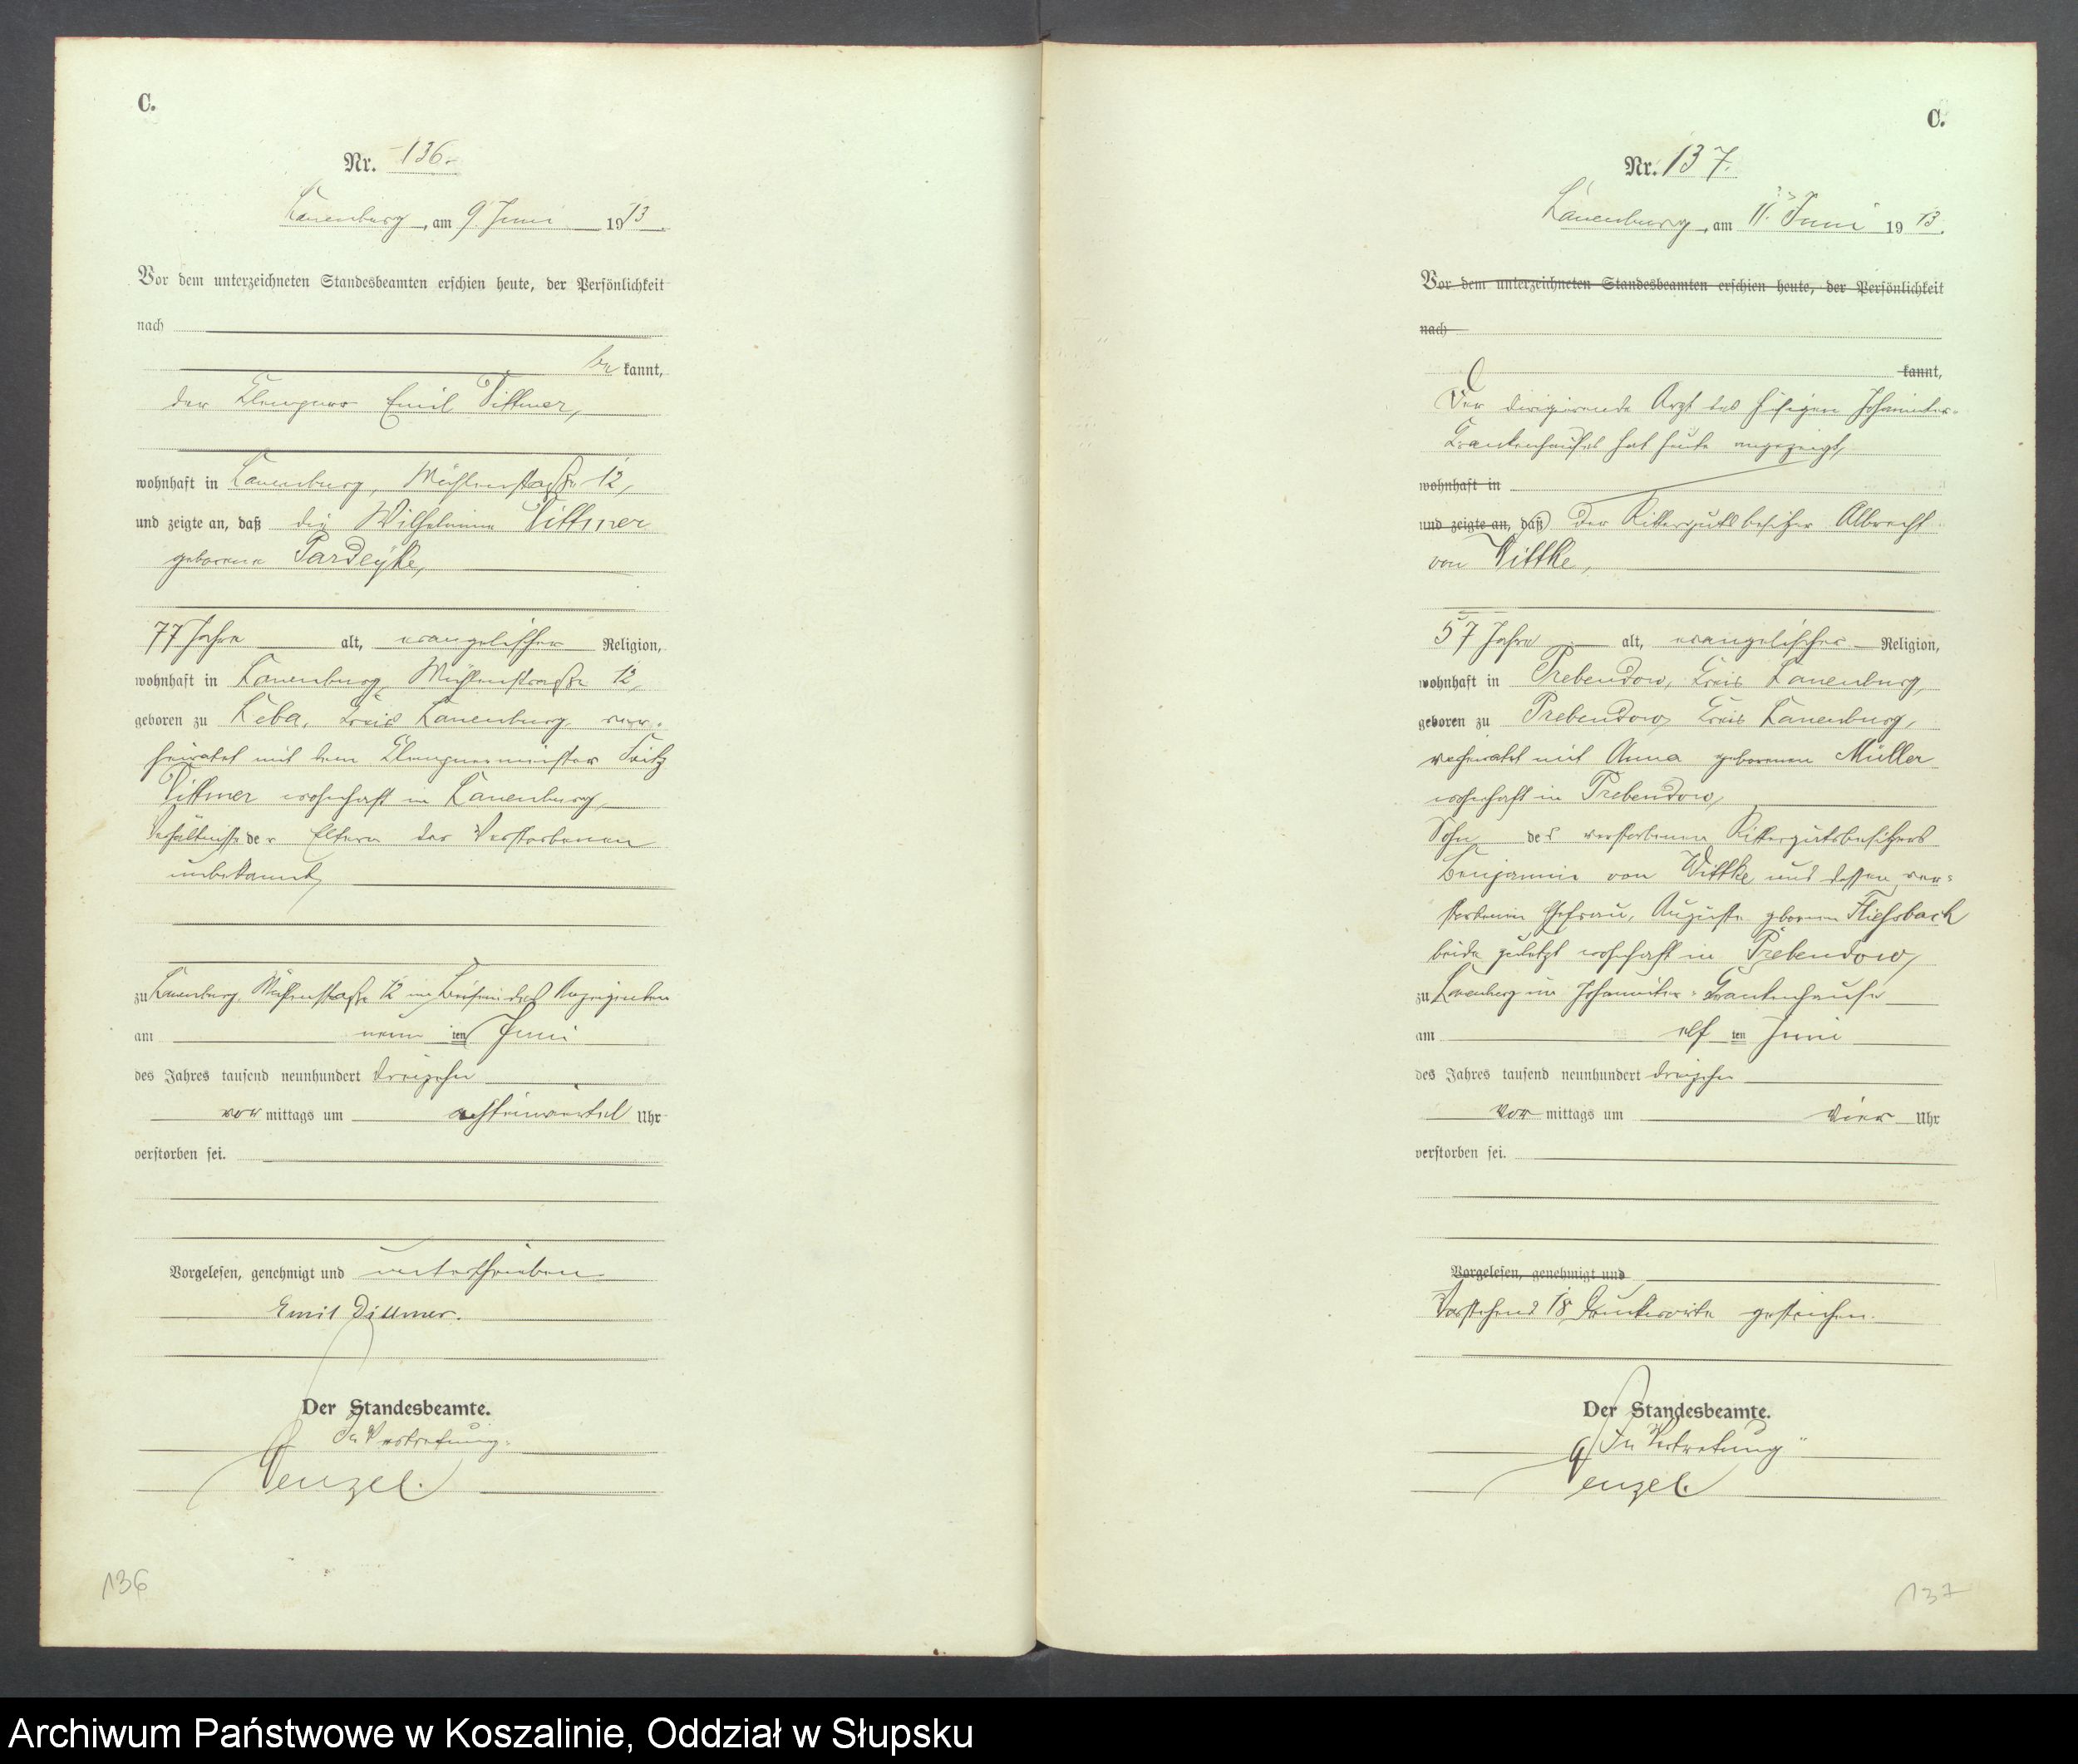 C.
Nr. 136.
Lauenburg, am 9 Juni 1913.
Vor dem unterzeichneten Standesbeamten erschien heute, der Persönlichkeit
nach
be kannt,
der Klempner Emil Dittmer,
wohnhaft in Lauenburg, Mühlenstraße 12,
und zeigte an, daß die Wilhelmine Dittmer
geborene Pardeyke,
77 Jahre alt, evangelischer Religion,
wohnhaft in Lauenburg, Mühlenstraße 12,
geboren zu Leba, Kreis Lauenburg, ver-
heiratet mit dem Klempnermeister Fritz
Dittmer wohnhaft in Lauenburg,
Verhältnisse der Eltern der Verstorbenen
unbekannt,
zu Lauenburg, Mühlenstraße 12 in Beisein des Anzeigenden
am neun ten Juni
des Jahres tausend neunhundert dreizehn
vor mittags um Uhr
verstorben sei.
Vorgelesen, genehmigt und unterschrieben
Emil Dittmer.
Der Standesbeamte.
In Vertretung.
Wenzel.
136
C.
Nr. 137.
Lauenburg, am 11. Juni 1913.
Vor dem unterzeichneten Standesbeamten erschien heute, der Persönlichkeit
nach
kannt,
Der dirigierende Arzt des hiesigen Johanniter-
Krankenhauses hat heute angezeigt,
wohnhaft in
und zeigte an, daß der Rittergutsbesitzer Albrecht
von Wittke,
57 Jahre alt, evangelischer Religion,
wohnhaft in Prebendow, Kreis Lauenburg,
geboren zu Prebendow, Kreis Lauenburg,
verheiratet mit Anna geborenen Müller
wohnhaft in Prebendow,
Sohn des verstorbenen Rittergutsbesitzers
Benjamin von Wittke und dessen ver-
storbenen Ehefrau, Auguste geborenen Fließbach
beide zuletzt wohnhaft in Prebendow,
zu Lauenburg im Johanniter-Krankenhause
am elf ten Juni
des Jahres tausend neunhundert dreizehn
vor mittags um vier Uhr
verstorben sei.
Vorgelesen, genehmigt und
Vorstehend 18 Druckworte gestrichen.
Der Standesbeamte.
In Vertretung
Wenzel.
137
Archiwum Państwowe w Koszalinie, Oddział w Słupsku